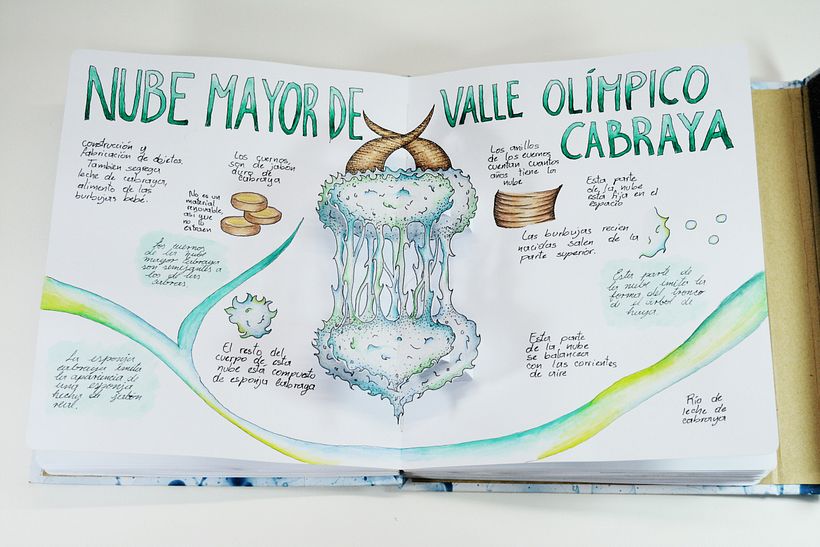 NUBE MAYOR DE
VALLE OLÍMPICO
CABRAYA
construcción y
fabricación de objetos.
También segrega
leche de cabraya,
alimento de las
burbujas bebé.
Los cuernos,
son de jabón
duro de
cabraya
No es un
material
renovable,
así que
no lo
extraen
Los cuernos
de las nube
mayor cabraya
son semejantes a
los de las
cabras
La esponja
cabraya imita
la apariencia de
una esponja
hecha de jabón
real.
El resto del
cuerpo de esta
nube está compuesto
de esponja cabraya
Los anillos
de los cuernos
cuentan cuantos
años tiene la
nube
Esta parte
de la nube
esta fija en el
espacio
Las burbujas recien
nacidas salen de la
parte superior.
Esta parte de
la nube imita la
forma del tronco
de el árbol de
haya.
Esta parte
de la nube
se balancea
con las corrientes
de aire
Río de
leche de
cabraya